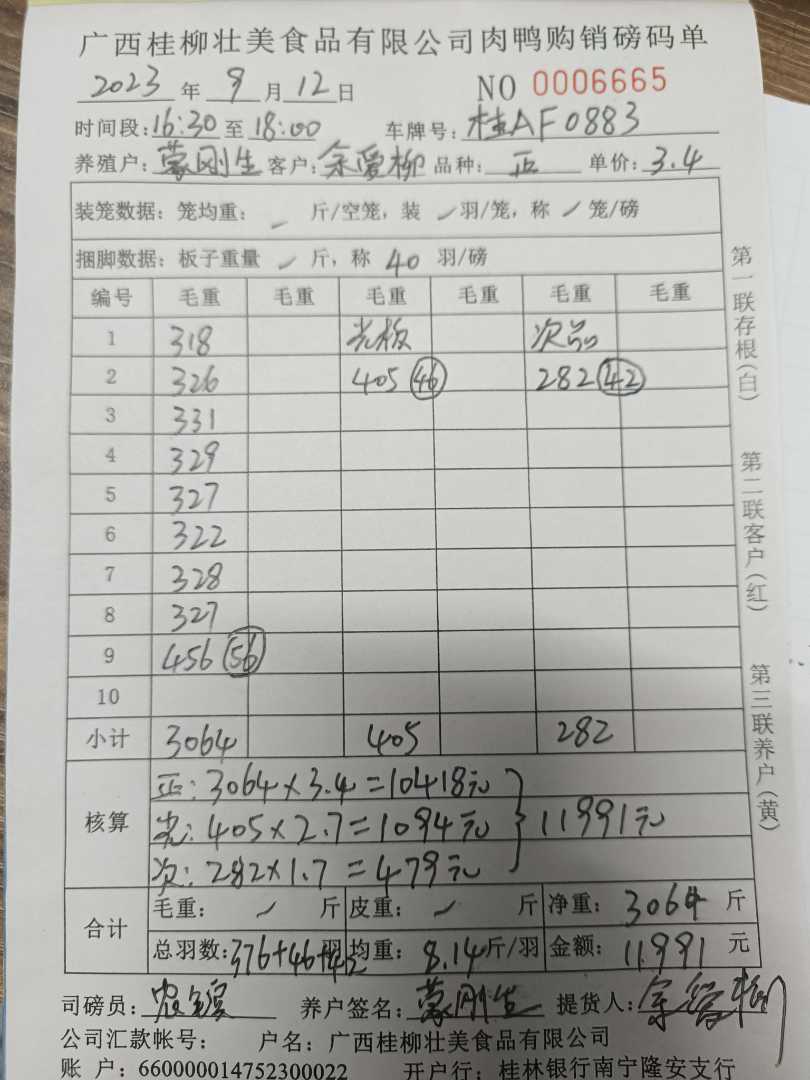 广西桂柳壮美食品有限公司肉鸭购销磅码单
2023年9月12日 NO 0006665
时间段:16:30至18:00 车牌号:桂AF0883
养殖户:蒙刚生 客户:余爱柳 品种:正 单价:3.4
装笼数据:笼均重: 斤/空笼,装 羽/笼,称 笼/磅
捆脚数据:板子重量 斤,称 40 羽/磅
编号 毛重 毛重 毛重 毛重 毛重 毛重
1 318 光板 次品
2 326 405 46 282 42
3 331
4 329
5 327
6 322
7 328
8 327
9 456 56
10
小计 3064 405 282
核算
正:3064×3.4=10418元
光:405×2.7=1094元 11991元
次:282×1.7=479元
合计
毛重: 斤 皮重: 斤 净重:3064斤
总羽数:376+46+42羽 均重:8.14斤/羽 金额:11991元
司磅员: 养户签名:蒙刚生 提货人:
公司汇款帐号: 户名:广西桂柳壮美食品有限公司
账户:660000014752300022 开户行:桂林银行南宁隆安支行
第一联存根(白)
第二联客户(红)
第三联养户(黄)